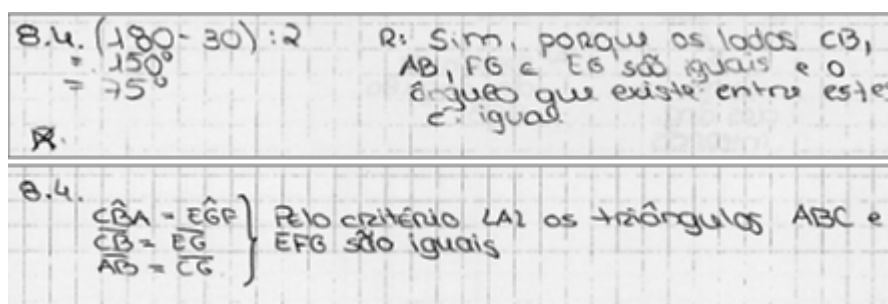 8.4. (180 - 30) : 2
= 150°
= 75°
R.
R: Sim, porque os lados CB,
AB, FG e EG são iguais e o
ângulo que existe entre este
é igual
8.4.
CB̂A = EĜF
CB = EG
AB = CG
Pelo critério LAL os triângulos ABC e
EFG são iguais